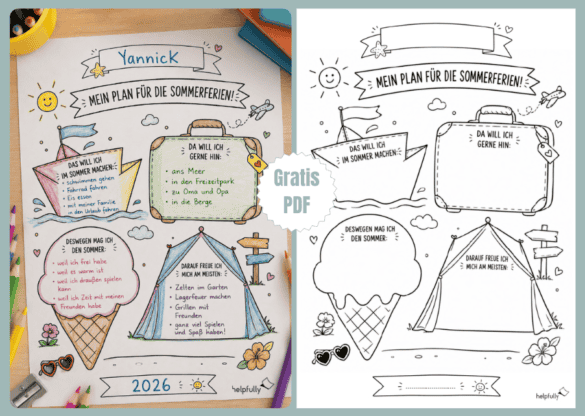 Yannick
MEIN PLAN FÜR DIE SOMMERFERIEN!
DAS WILL ICH
IM SOMMER MACHEN:
• schwimmen gehen
• Fahrrad fahren
• Eis essen
• mit meiner Familie
in den Urlaub fahren
DA WILL ICH
GERNE HIN:
• ans Meer
• in den Freizeitpark
• zu Oma und Opa
• in die Berge
DESWEGEN MAG ICH
DEN SOMMER:
• weil ich frei habe
• weil es warm ist
• weil ich draußen spielen
kann
• weil ich Zeit mit meinen
Freunden habe
DARAUF FREUE ICH
MICH AM MEISTEN:
• Zelten im Garten
• Lagerfeuer machen
• Grillen mit
Freunden
• ganz viel Spielen
und Spaß haben!
2026
helpfully
Gratis
PDF
MEIN PLAN FÜR DIE SOMMERFERIEN!
DAS WILL ICH
IM SOMMER MACHEN:
DA WILL ICH
GERNE HIN:
DESWEGEN MAG ICH
DEN SOMMER:
DARAUF FREUE ICH
MICH AM MEISTEN:
helpfully